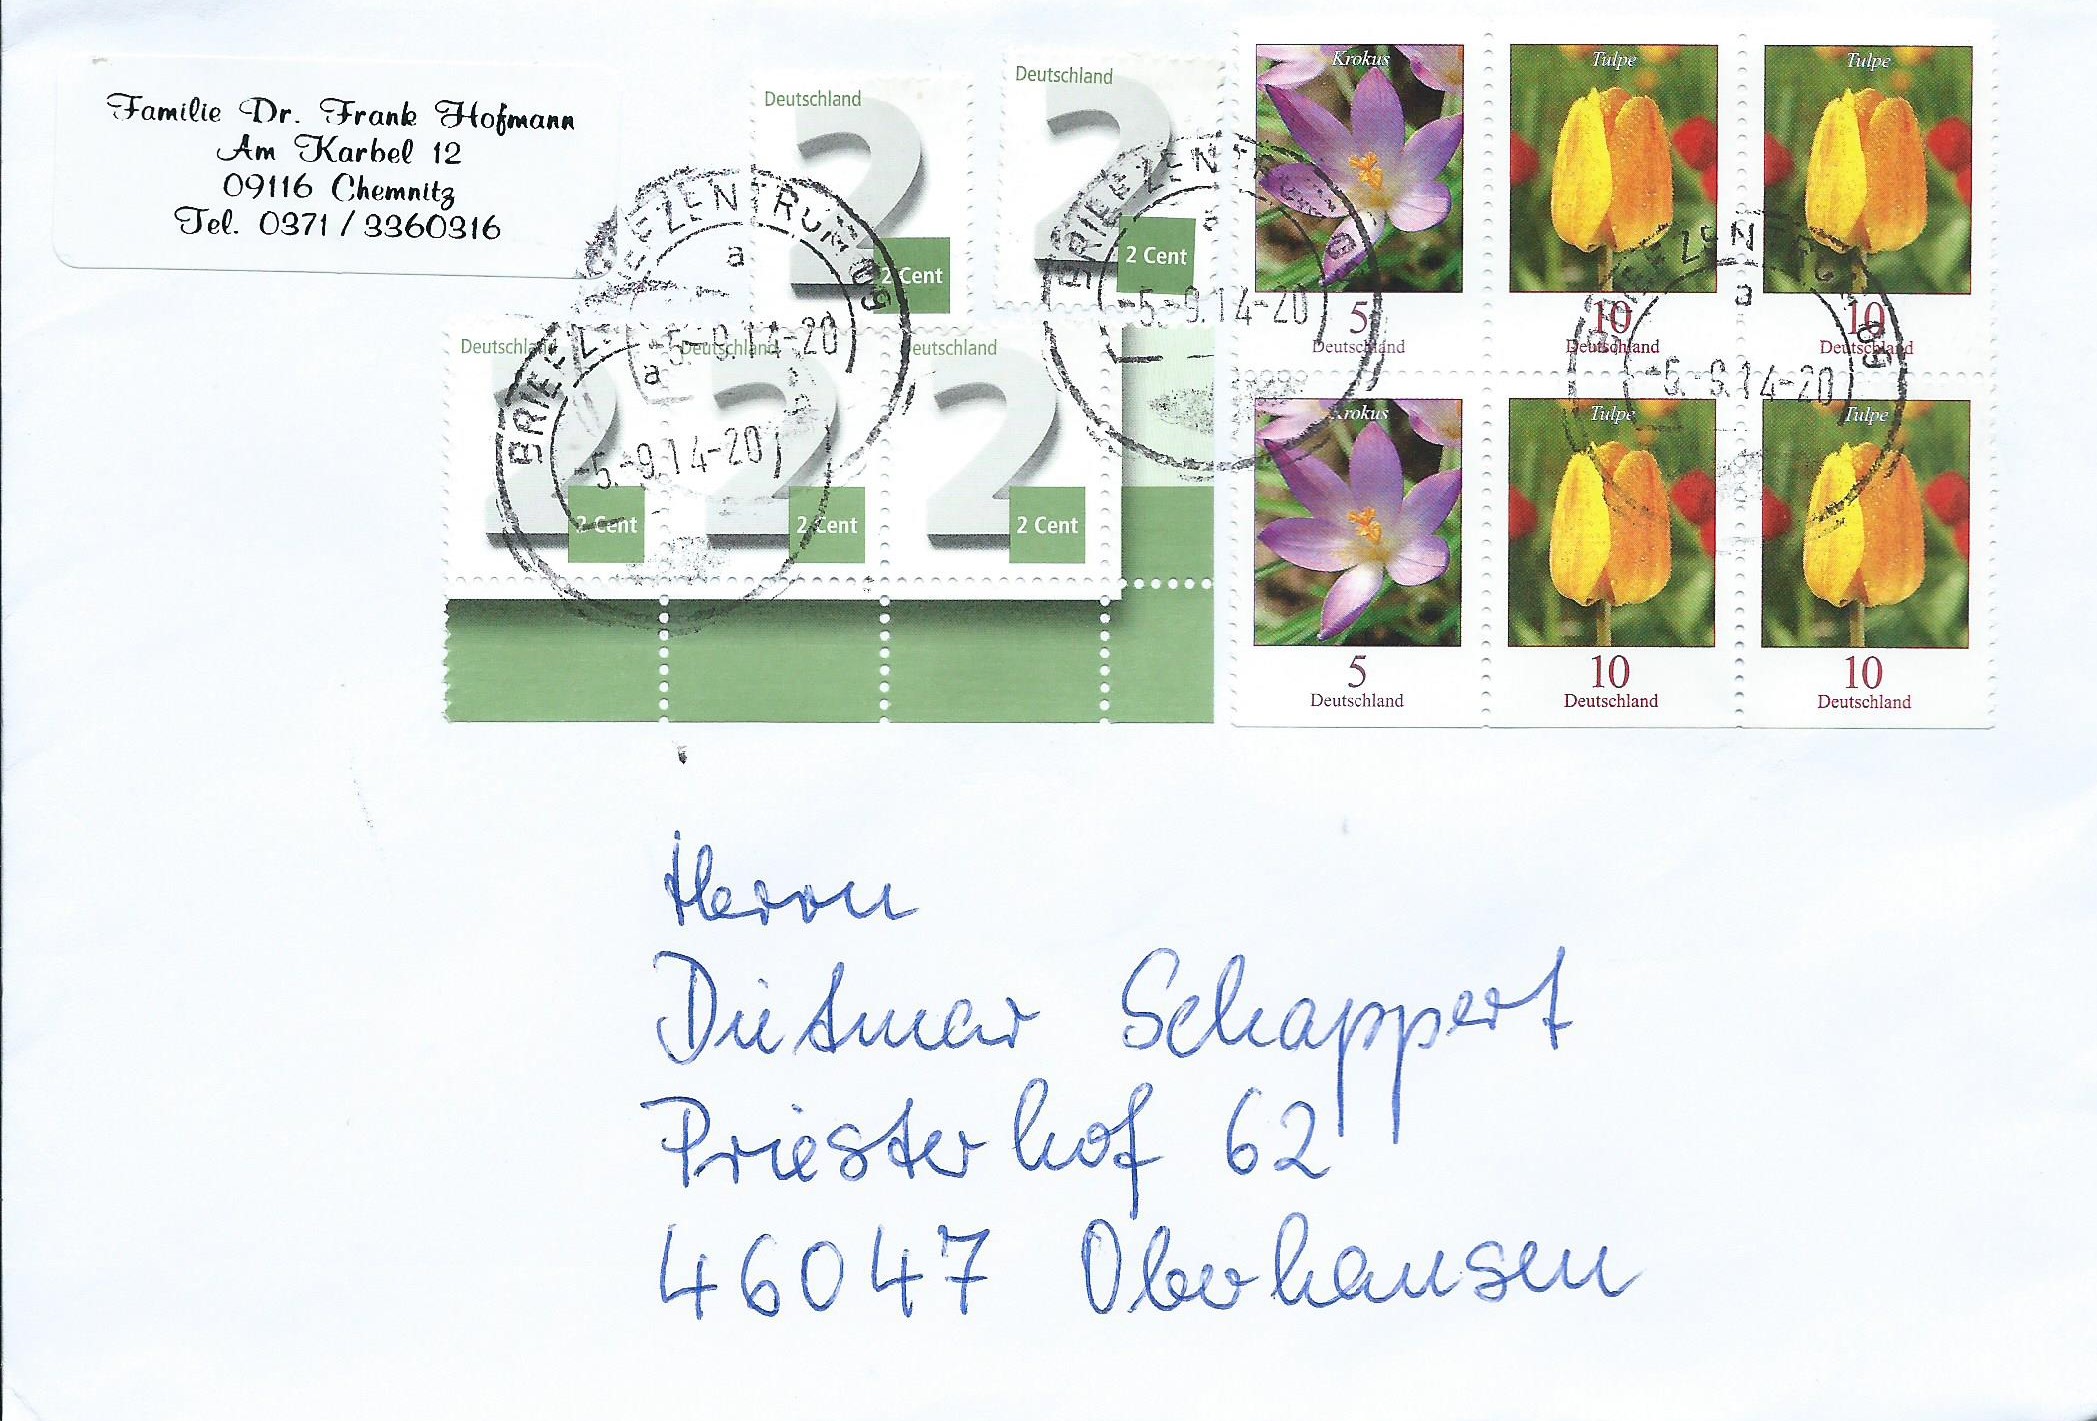 Familie Dr. Frank Hofmann
Am Karbel 12
09116 Chemnitz
Tel. 0371 / 3360316
Deutschland
2 Cent
Deutschland
2 Cent
Deutschland
2 Cent
Deutschland
2 Cent
Deutschland
2 Cent
BRIEFZENTRUM 09
a
-5.-9.14-20
BRIEFZENTRUM
a
-5.-9.14-20
BRIEFZENTRUM 0
a
-5.-9.14-20
BRIEFZENTRUM 09
a
-5.-9.14-20
Krokus
5
Deutschland
Tulpe
10
Deutschland
Tulpe
10
Deutschland
Krokus
5
Deutschland
Tulpe
10
Deutschland
Tulpe
10
Deutschland
Herrn
Dietmar Schappert
Priesterhof 62
46047 Oberhausen